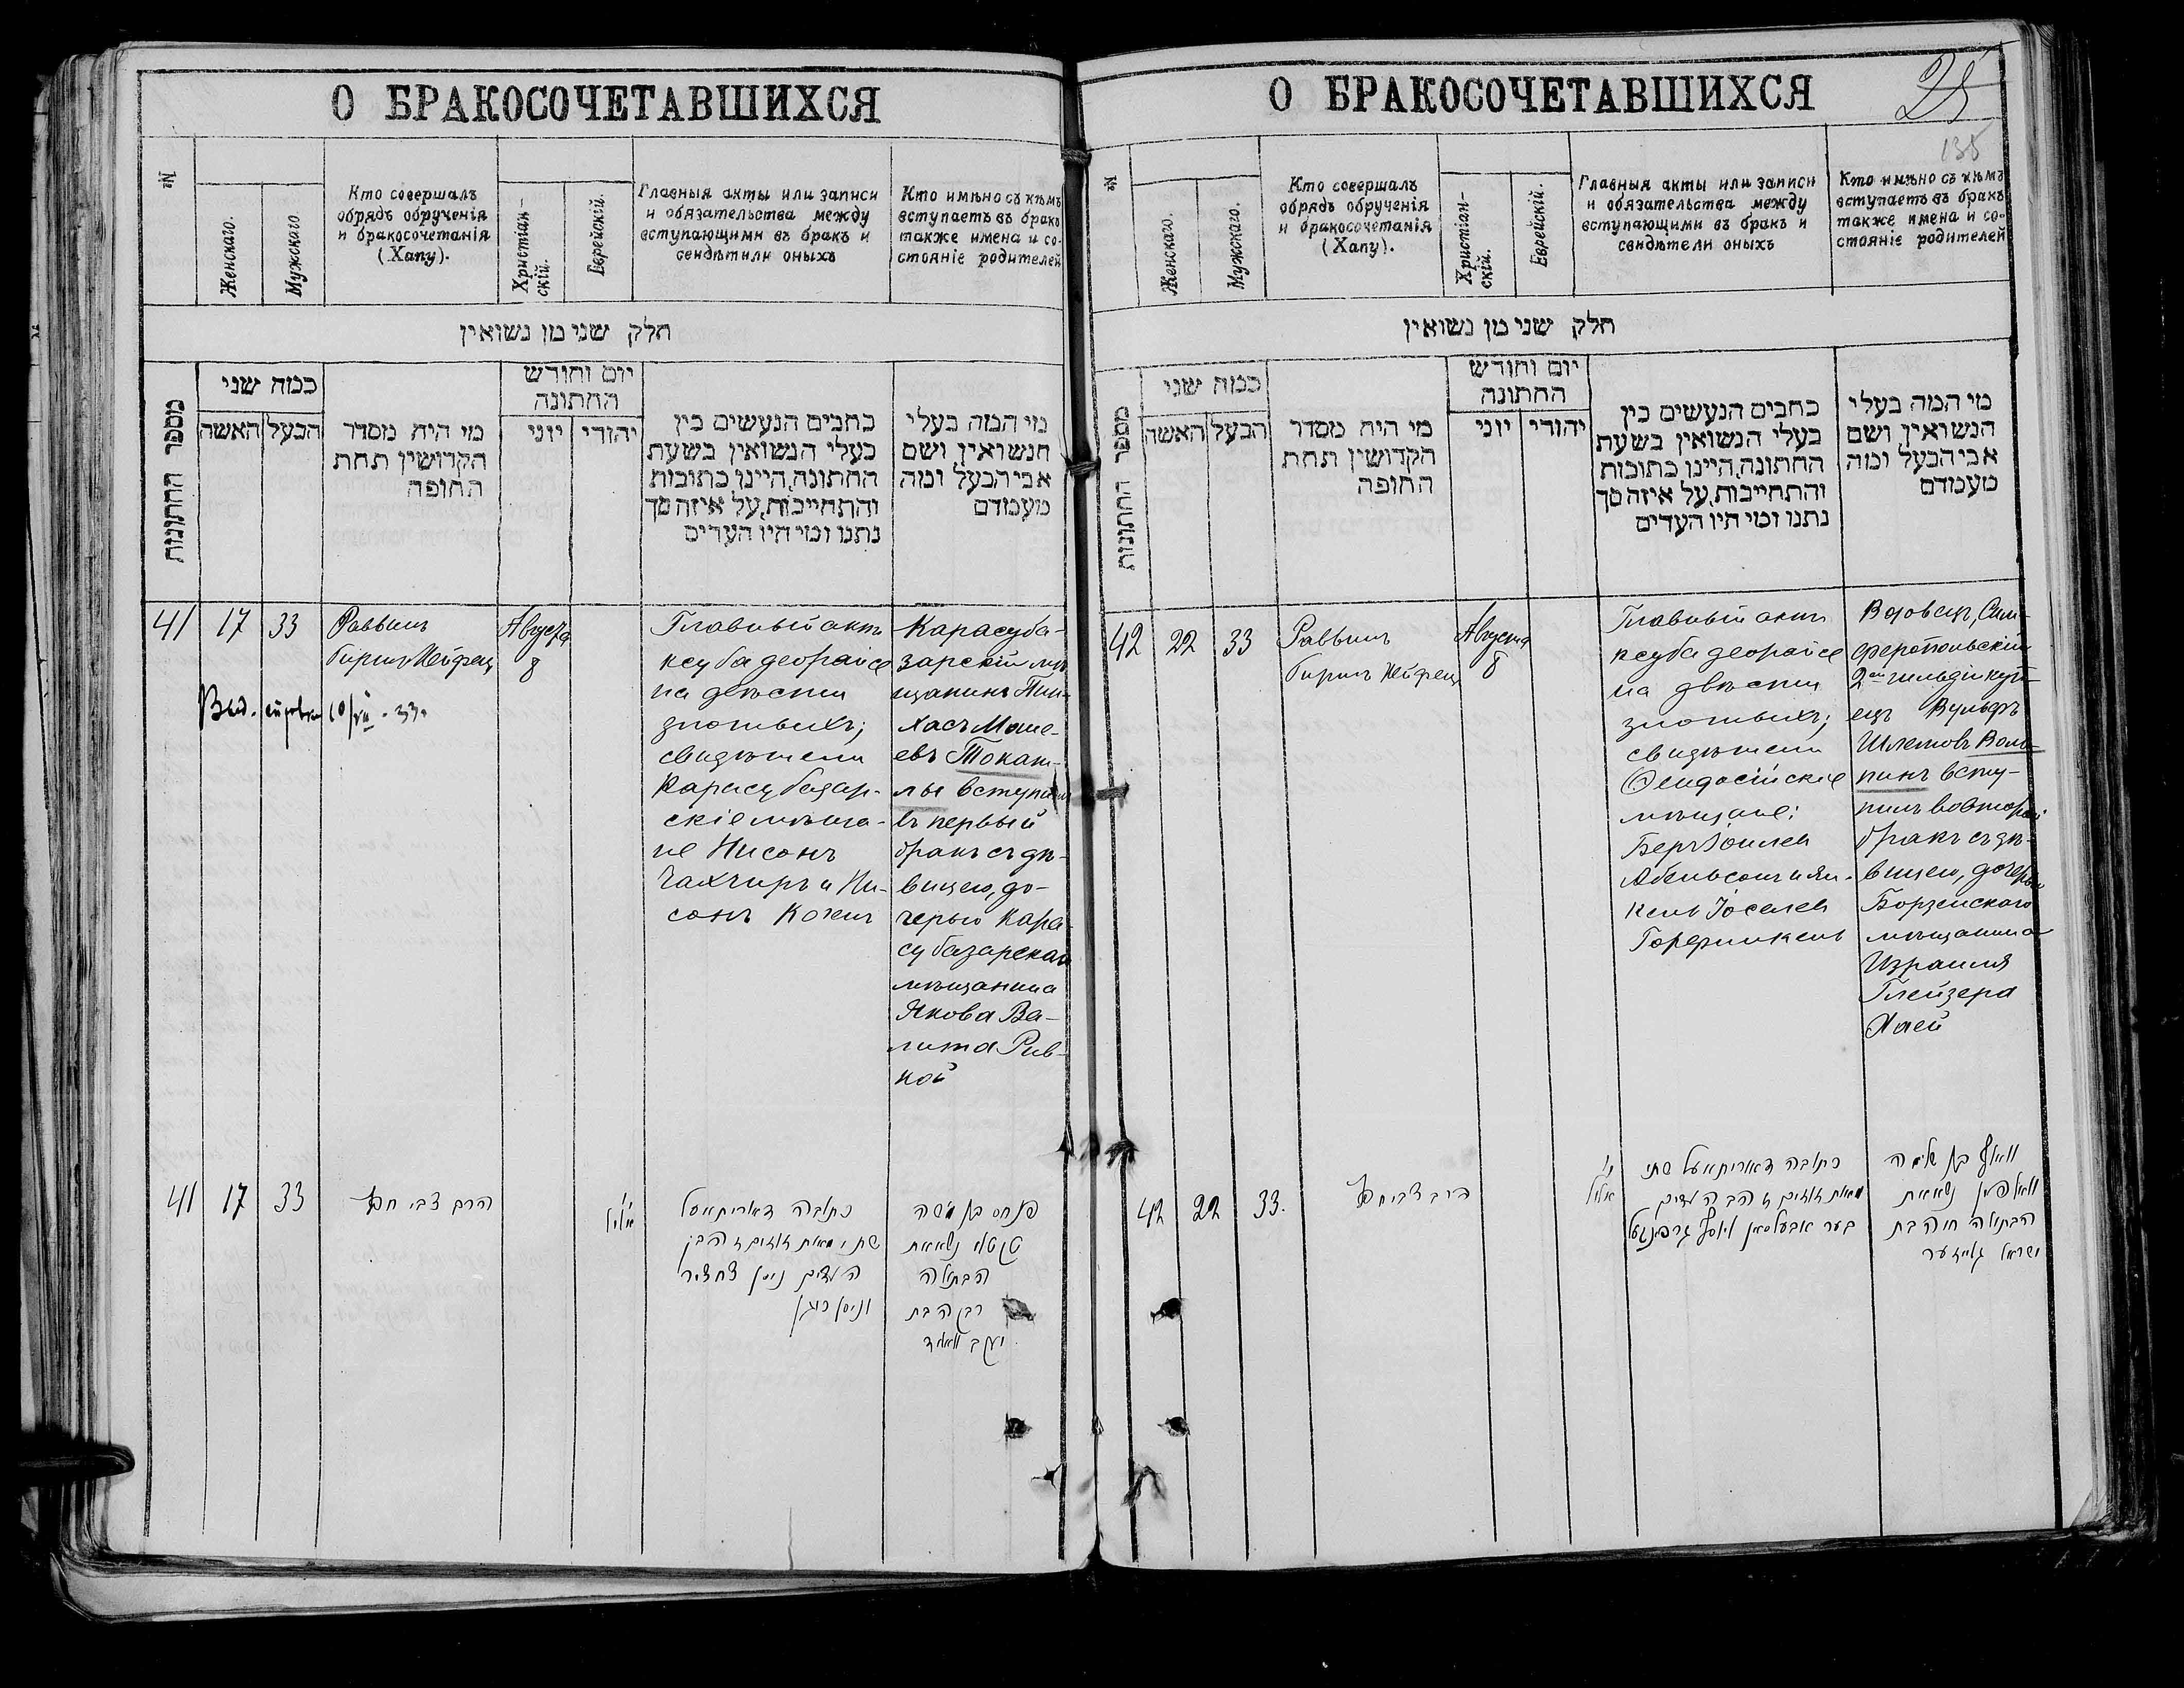 О БРАКОСОЧЕТАВШИХСЯ
№
Женскаго.
Мужскаго
Кто совершалъ
обрядъ обрученія
и бракосочетанія
(Хапу).
Христіан-
скій.
Еврейскій.
Главныя акты или записи
и обязательства между
вступающими въ бракъ и
свидѣтили оныхъ
Кто имѣно съ кѣмъ
вступаетъ въ бракъ
также имена и со-
стояніе родителей
חלק שני מן נשואין
מספר החתונות
כמה שני
האשה
הבעל
מי היה מסדר
הקדושין תחת
החופה
יום וחודש
החתונה
יוני
יהודי
כתבים הנעשים בין
בעלי הנשואין בשעת
החתונה, היינו כתובות
והתחייבות, על איזה סך
נתנו ומי היו העדים
מי המה בעלי
הנשואין ושם
אבי הבעל ומה
מעמדם
41
17
33
Раввинъ
Гиршъ Хейфецъ
Августа
8
Главный актъ
ксуба деорайсе
на двѣсти
злотыхъ;
свидѣтели
Карасубазар-
скіе мѣща-
не Нисонъ
Чахчиръ и Ни-
сонъ Когенъ
Карасуба-
зарскій мѣ
щанинъ Пин-
хасъ Моше-
евъ Токат-
лы вступилъ
въ первый
бракъ съ дѣ-
вицею, до-
черью Кара-
субазарскаго
мѣщанина
Якова Ва-
лита Рив-
кой
41
17
33
הרב צבי חפץ
אלול
כתובה דאורייתא על
שתי מאות זוזים זהב
העדים ניסן צחציר
וניסן כהן
פנחס בן משה
טוקטלי נשא את
הבתולה
רבקה בת
יעקב וואליד
О БРАКОСОЧЕТАВШИХСЯ
25
135
№
Женскаго.
Мужскаго.
Кто совершалъ
обрядъ обрученія
и бракосочетанія
(Хапу).
Христіан-
скій.
Еврейскій.
Главныя акты или записи
и обязательства между
вступающими въ бракъ и
свидѣтели оныхъ
Кто имѣно съ кѣмъ
вступаетъ въ бракъ
также имена и со-
стояніе родителей
חלק שני מן נשואין
מספר החתונות
כמה שני
האשה
הבעל
מי היה מסדר
הקדושין תחת
החופה
יום וחודש
החתונה
יוני
יהודי
כתבים הנעשים בין
בעלי הנשואין בשעת
החתונה, היינו כתובות
והתחייבות, על איזה סך
נתנו ומי היו העדים
מי המה בעלי
הנשואין ושם
אבי הבעל ומה
מעמדם
42
22
33
Раввинъ
Гиршъ Хейфецъ
Августа
8
Главный актъ
ксуба деорайсе
на двѣсти
злотыхъ;
свидѣтели
Ѳеодосійскіе
мѣщане:
Беръ Іоилев
Абельсонъ и Ян-
кель Іоселев
Горфинкель
Вдовецъ, Сим-
феропольскій
2ой гильдіи куп-
ецъ Вульфъ
Шлемовъ Воль-
пинъ всту-
пилъ во второй
бракъ съ дѣ-
вицею, дочерью
Борзенскаго
мѣщанина
Израиля
Глейзера
Хаей
42
22
33.
הרב צבי חפץ
אלול
כתובה דאורייתא על שתי
מאות זוזים זהב העדים
בער אבעלסאן
וואלף בן שלמה
וואלפין נשא את
הבתולה חיה בת
ישראל גלייזער